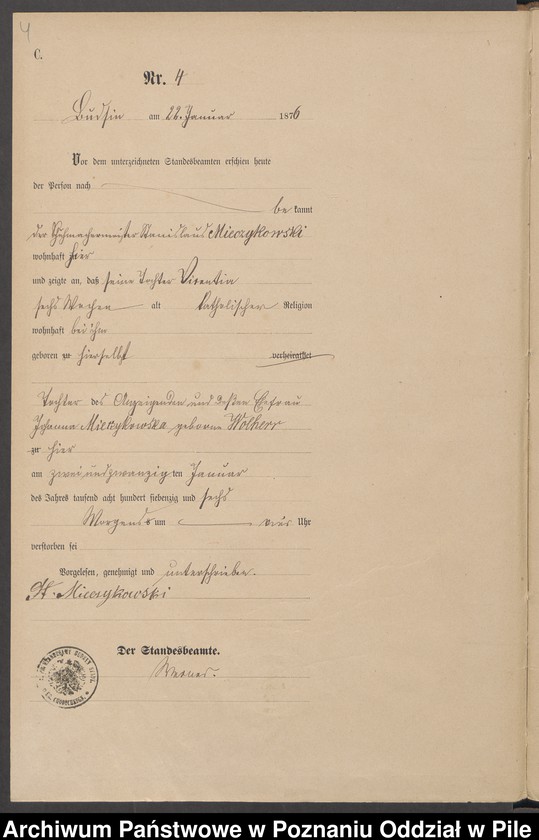 4
C.
Nr. 4
Budsin am 22. Januar 1876
Vor dem unterzeichneten Standesbeamten erschien heute
der Person nach
be kannt
der Schuhmachermeister Stanislaus Mieczykowski
wohnhaft hier
und zeigte an, daß seine Tochter Vicentia
sechs Wochen alt katholischer Religion
wohnhaft bei ihm
geboren zu hierselbst verheirathet
Tochter des Anzeigenden und dessen Ehefrau
Johanna Mieczykowska geborne Wolherr
zu hier
am zwei und zwanzig ten Januar
des Jahres tausend acht hundert siebenzig und sechs
Morgens um vier Uhr
verstorben sei
Vorgelesen, genehmigt und unterschrieben.
St. Mieczykowski
Der Standesbeamte.
Werner.
Archiwum Państwowe w Poznaniu Oddział w Pile